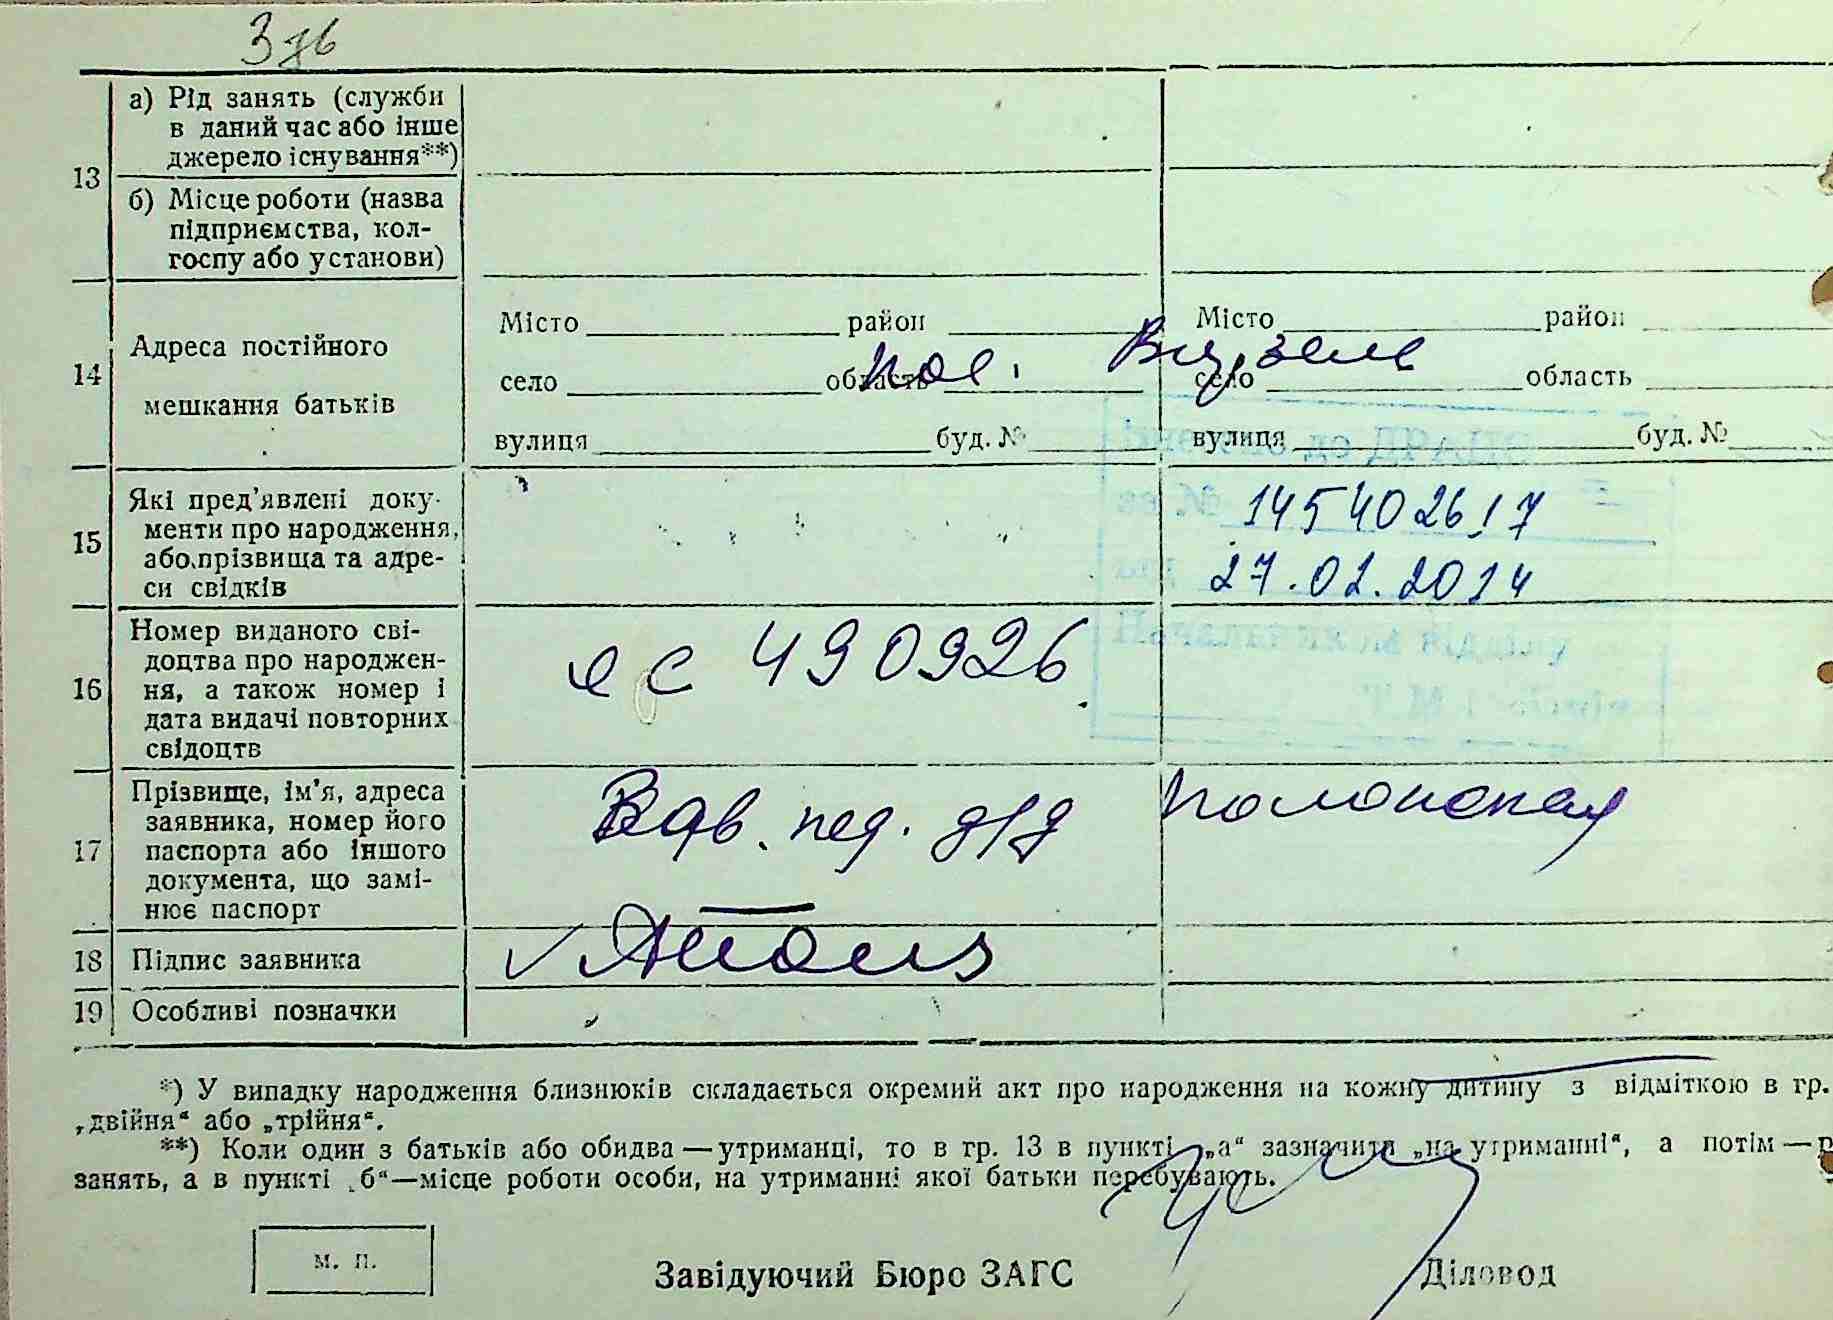 376
13
а) Рід занять (служби
в даний час або інше
джерело існування**)
б) Місце роботи (назва
підприємства, кол-
госпу або установи)
14
Адреса постійного
мешкання батьків
Місто район
село область
вулиця буд. №
Місто район
село область
вулиця буд. №
пос.
15
Які пред’явлені доку-
менти про народження,
або прізвища та адре-
си свідків
14540261,7
27.02.2014
16
Номер виданого сві-
доцтва про народжен-
ня, а також номер і
дата видачі повторних
свідоцтв
ЯС 490926
17
Прізвище, ім’я, адреса
заявника, номер його
паспорта або іншого
документа, що замі-
нює паспорт
Зав. пед. д/д Полонская
18 Підпис заявника
19 Особливі позначки
*) У випадку народження близнюків складається окремий акт про народження на кожну дитину з відміткою в гр.
„двійня“ або „трійня“.
**) Коли один з батьків або обидва — утриманці, то в гр. 13 в пункті „а“ зазначити „на утриманні“, а потім —
занять, а в пункті „б“—місце роботи особи, на утриманні якої батьки перебувають.
М. П.
Завідуючий Бюро ЗАГС
Діловод